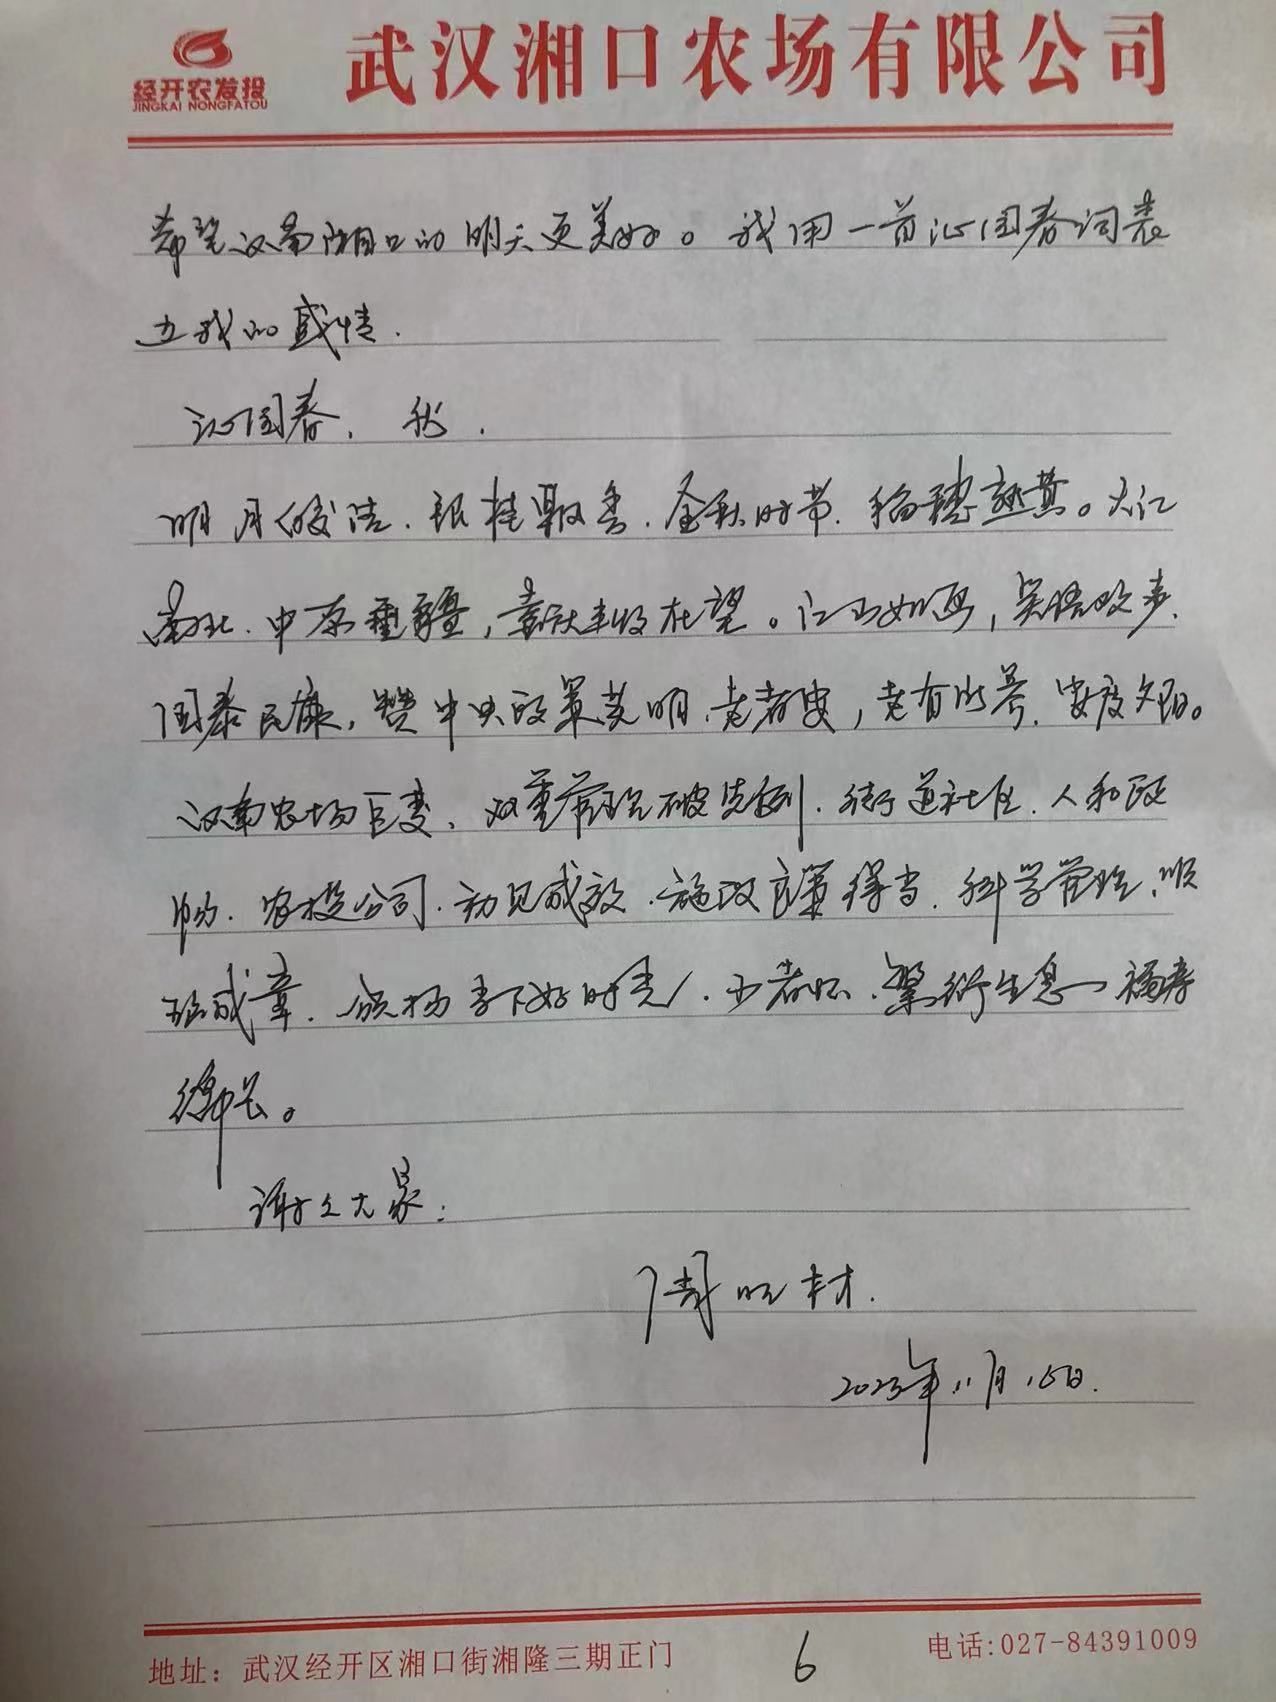 经开农发投
JINGKAI NONGFATOU
武汉湘口农场有限公司
希望汉南湘口的明天更美好。我用一首沁园春词表
达我的感情.
沁园春、秋.
明月皎洁.银桂飘香.金秋时节.稻穗熟黄。大江
南北.中原重疆,喜庆丰收在望。江山如画,吴语欢声.
国泰民康,赞中央政策英明.老者安,老有所养.安度夕阳。
汉南农场巨变、双重管理破先例.街道社区.人和政
畅.农投公司.初见成效.施政良策得当.科学管理.顺
理成章.颂扬当下好时光.少者怀.繁衍生息福寿
绵长。
谢谢大家:
周旺材.
2023年11月16日.
地址:武汉经开区湘口街湘隆三期正门
6
电话:027-84391009